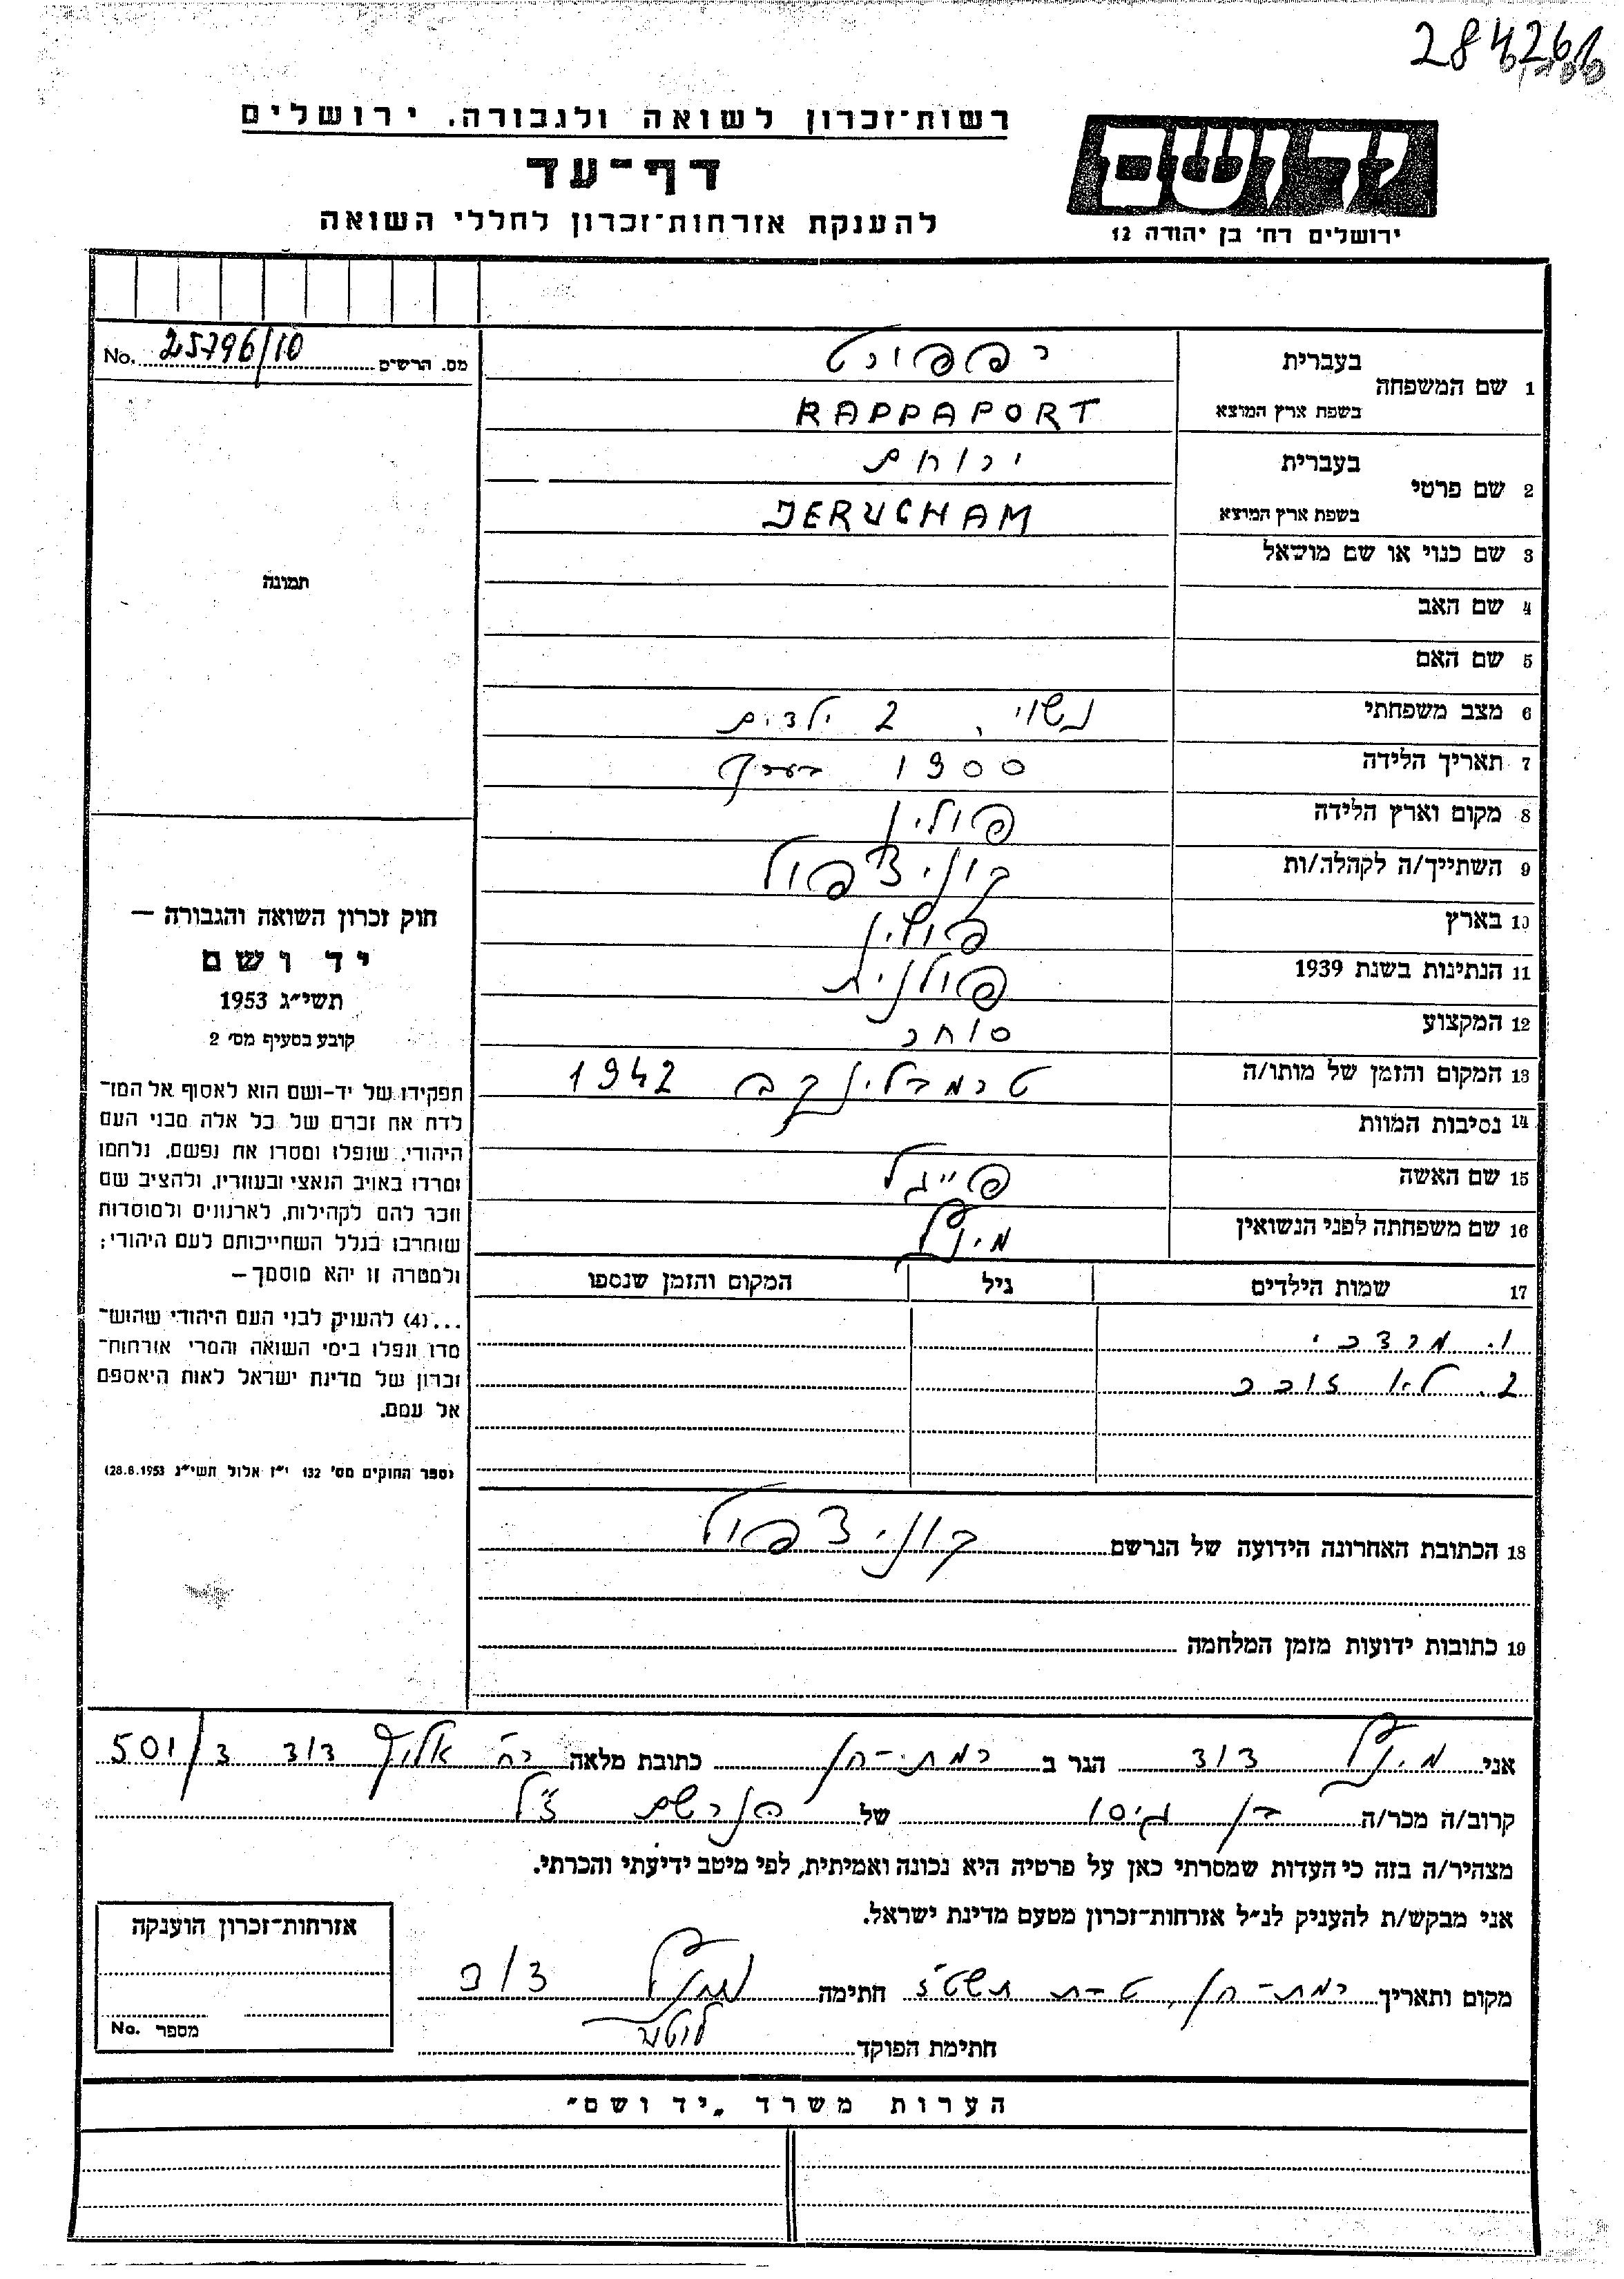 284261
רשות־זכרון לשואה ולגבורה, ירושלים
דף־עד
להענקת אזרחות־זכרון לחללי השואה
יד ושם
ירושלים רח׳ בן יהודה 12
מס. הרשים No. 25796/10
1 שם המשפחה בעברית רפפורט
בשפת ארץ המוצא RAPPAPORT
2 שם פרטי בעברית ירוחם
בשפת ארץ המוצא JERUCHAM
3 שם כנוי או שם מושאל
4 שם האב
5 שם האם
6 מצב משפחתי נשוי, 2 ילדים
7 תאריך הלידה 1900 בערך
8 מקום וארץ הלידה פולין
9 השתייך/ה לקהלה/ות קוניצפול
10 בארץ פולין
11 הנתינות בשנת 1939 פולנית
12 המקצוע סוחר
13 המקום והזמן של מותו/ה טרמבלינקה 1942
14 נסיבות המוות
15 שם האשה פייגל
16 שם משפחתה לפני הנשואין
17 שמות הילדים גיל המקום והזמן שנספו
1. מרדכי
2. לא זוכר
18 הכתובת האחרונה הידועה של הנרשם קוניצפול
19 כתובות ידועות מזמן המלחמה
תמונה
חוק זכרון השואה והגבורה —
יד ושם
תשי״ג 1953
קובע בסעיף מס׳ 2
תפקידו של יד-ושם הוא לאסוף אל המו־
לדת את זכרם של כל אלה מבני העם
היהודי, שנפלו ומסרו את נפשם, נלחמו
ומרדו באויב הנאצי ובעוזריו, ולהציב שם
וזכר להם לקהילות, לארגונים ולמוסדות
שוחרבו בגלל השתייכותם לעם היהודי;
ולמטרה זו יהא מוסמך—
...(4) להעניק לבני העם היהודי שהוש־
מדו ונפלו בימי השואה והמרי אזרחות־
זכרון של מדינת ישראל לאות היאספם
אל עמם.
(ספר החוקים מס׳ 132 י״ז אלול תשי״ג 28.8.1953)
אני דוד הגר ב רמת-חן כתובת מלאה רח׳ אלוף דוד 501/3
קרוב/ה מכר/ה בן גיסו של הנרשם ז״ל
מצהיר/ה בזה כי העדות שמסרתי כאן על פרטיה היא נכונה ואמיתית, לפי מיטב ידיעתי והכרתי.
אני מבקש/ת להעניק לנ״ל אזרחות־זכרון מטעם מדינת ישראל.
מקום ותאריך רמת-חן, חתימה
חתימת הפוקד
אזרחות־זכרון הוענקה
מספר No.
הערות משרד „יד ושם״